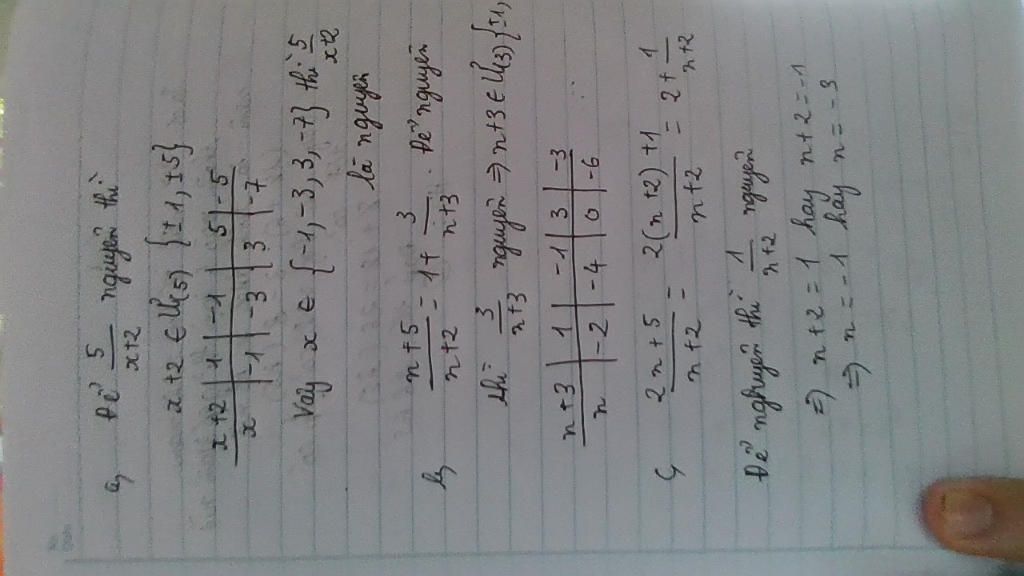 a, Để 5/x+2 nguyên thì
x+2 ∈ Ư(5) {±1, ±5}
x+2 | 1 | -1 | 5 | -5
x | -1 | -3 | 3 | -7
Vậy x ∈ {-1, -3, 3, -7} thì 5/x+2
là nguyên
b, n+5/n+2 = 1 + 3/n+3 . Để nguyên
thì 3/n+3 nguyên => n+3 ∈ Ư(3) {±1,
n+3 | 1 | -1 | 3 | -3
n | -2 | -4 | 0 | -6
c, 2n+5/n+2 = 2(n+2)+1/n+2 = 2 + 1/n+2
Để nghuyên thì 1/n+2 nguyên
=> n+2 = 1 hay n+2 = -1
=> n = -1 hay n = -3